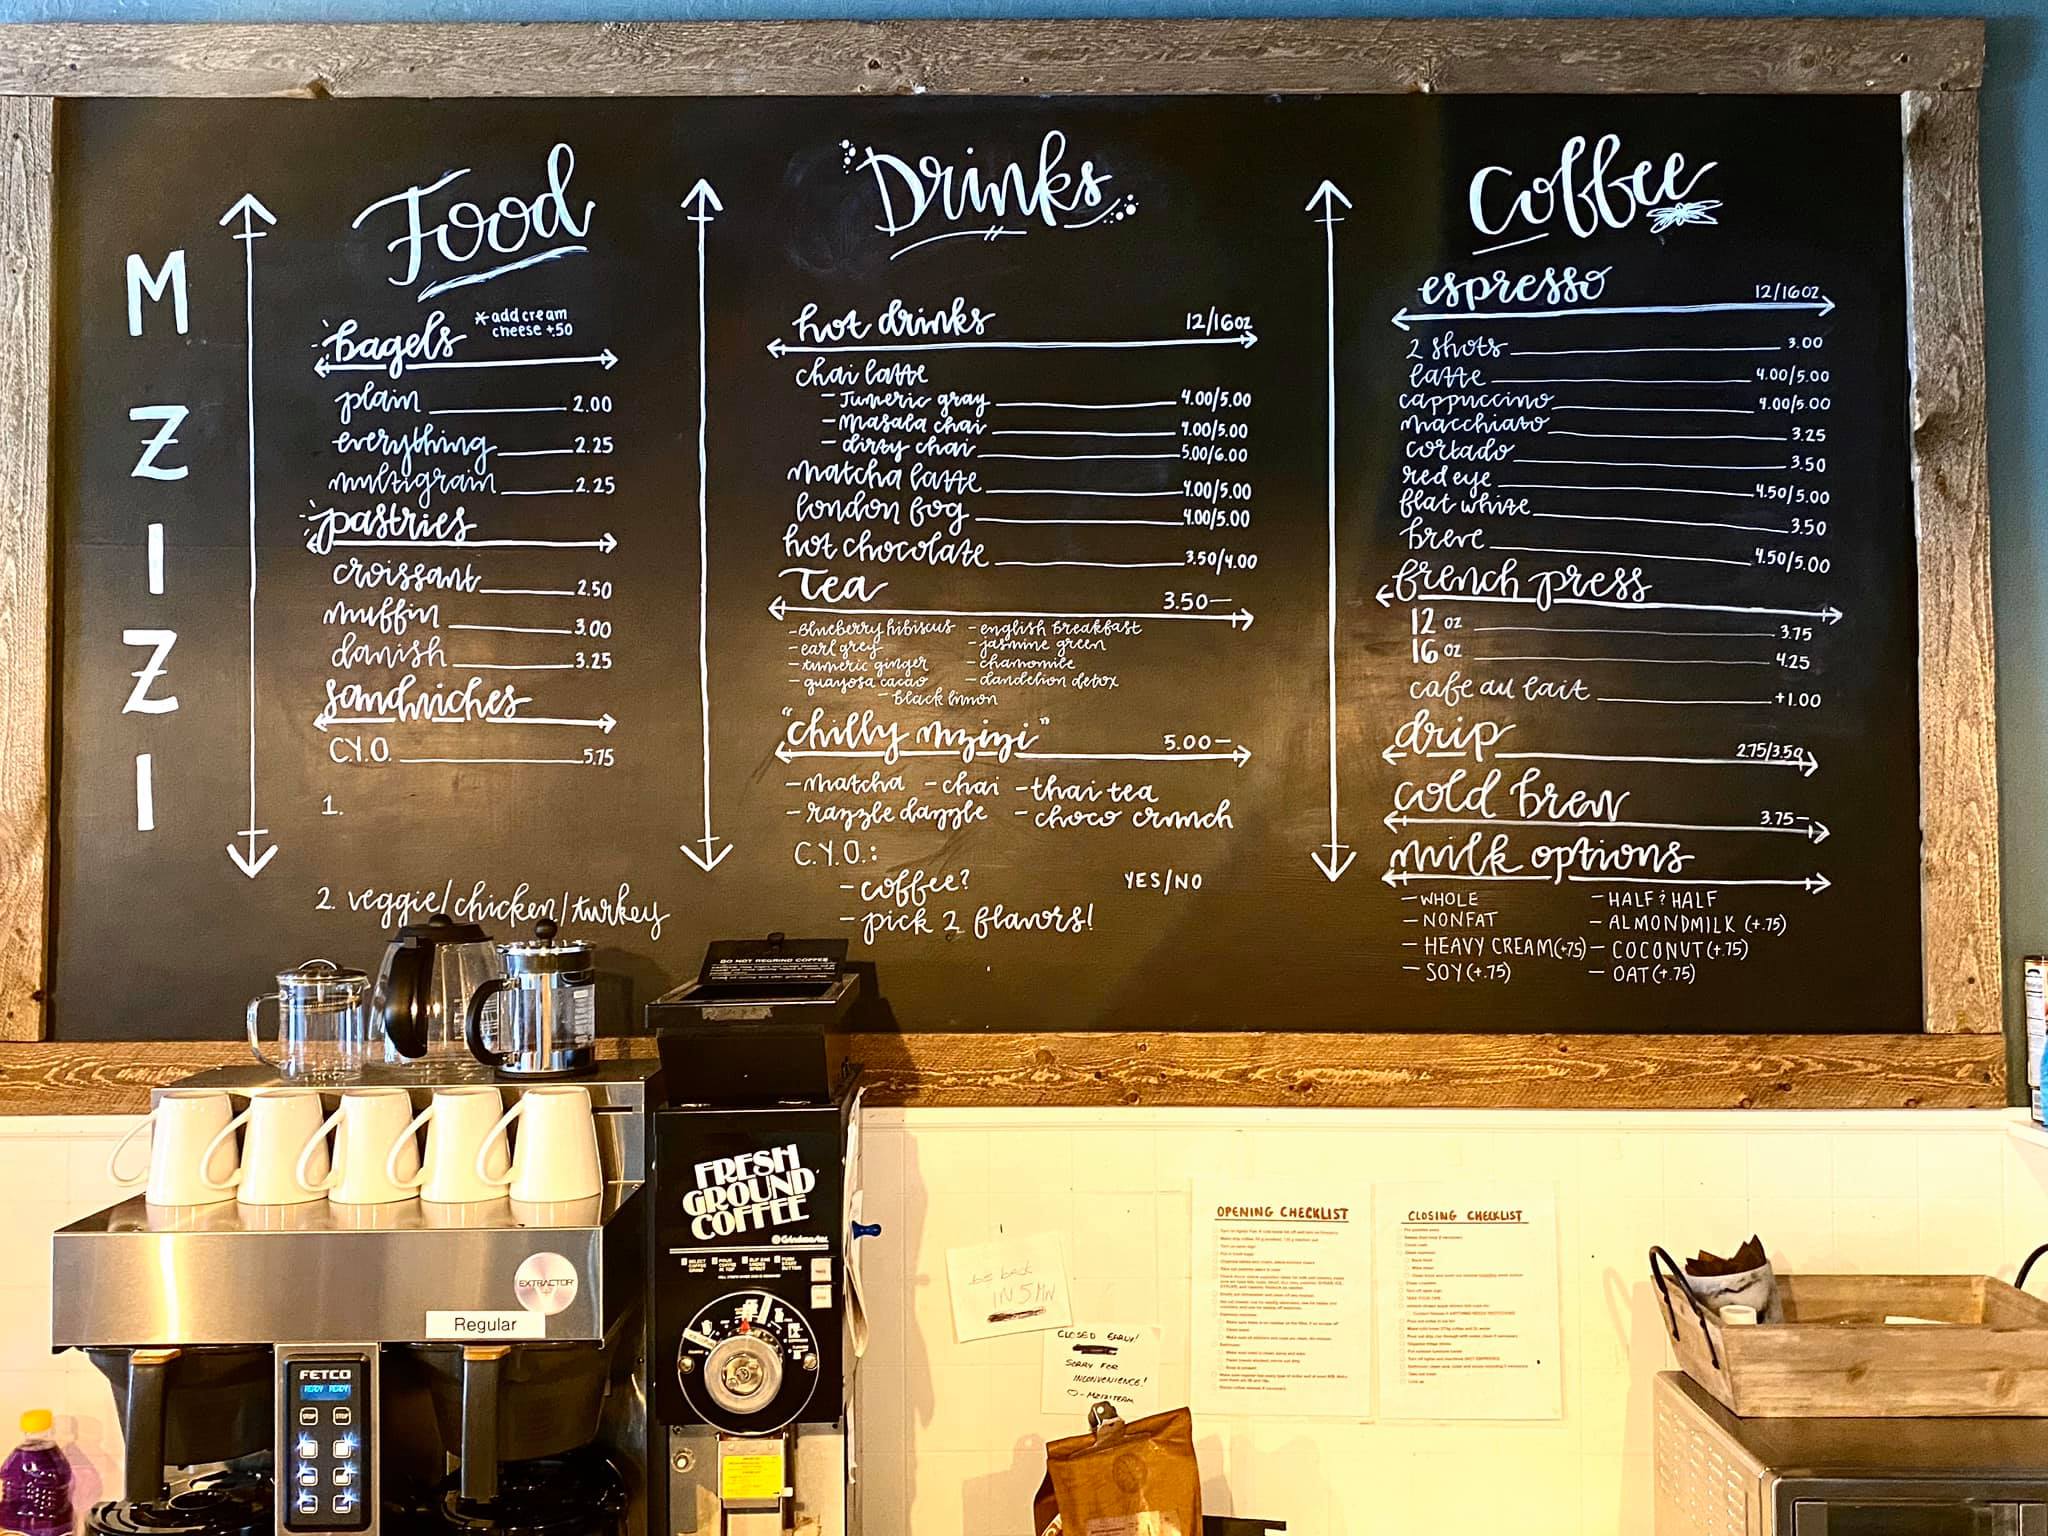 MZIZI
Food
bagels
*add cream
cheese +.50
plain 2.00
everything 2.25
multigrain 2.25
pastries
croissant 2.50
muffin 3.00
danish 3.25
sandwiches
C.Y.O. 5.75
1.
2. veggie/chicken/turkey
Drinks
hot drinks 12/16oz
chai latte
- Tumeric gray 4.00/5.00
- Masala chai 4.00/5.00
- dirty chai 5.00/6.00
matcha latte 4.00/5.00
london fog 4.00/5.00
hot chocolate 3.50/4.00
Tea 3.50-
- Blueberry hibiscus - english breakfast
- earl grey - jasmine green
- tumeric ginger - chamomile
- guayosa cacao - dandelion detox
- black limon
"chilly mzizi" 5.00-
- matcha - chai - thai tea
- razzle dazzle - choco crunch
C.Y.O.:
- coffee? YES/NO
- pick 2 flavors!
Coffee
espresso 12/16oz
2 shots 3.00
latte 4.00/5.00
cappuccino 4.00/5.00
macchiato 3.25
cortado 3.50
red eye 4.50/5.00
flat white 3.50
breve 4.50/5.00
french press
12 oz 3.75
16 oz 4.25
cafe au lait +1.00
drip 2.75/3.50
cold brew 3.75-
milk options
- WHOLE - HALF & HALF
- NONFAT - ALMONDMILK (+.75)
- HEAVY CREAM (+.75) - COCONUT (+.75)
- SOY (+.75) - OAT (+.75)
DO NOT REGRIND COFFEE
FRESH
GROUND
COFFEE
EXTRACTOR
Regular
FETCO
READY READY
STOP STOP
be back
IN 5 MIN
CLOSED EARLY!
SORRY FOR
INCONVENIENCE!
OPENING CHECKLIST
CLOSING CHECKLIST